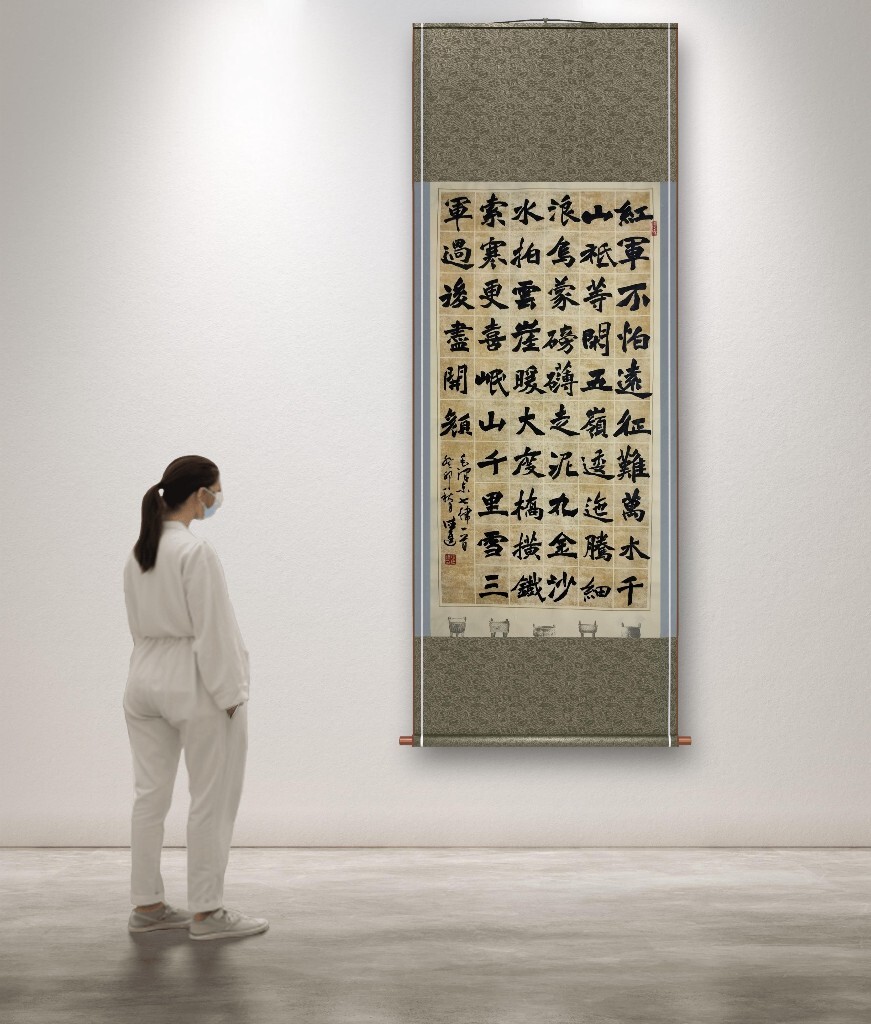 紅軍不怕遠征難萬水千
山祗等閑五嶺逶迤騰細
浪烏蒙磅礴走泥丸金沙
水拍雲崖暖大度橋橫鐵
索寒更喜岷山千里雪三
軍過後盡開顏
毛澤东七律一首
癸卯秋月